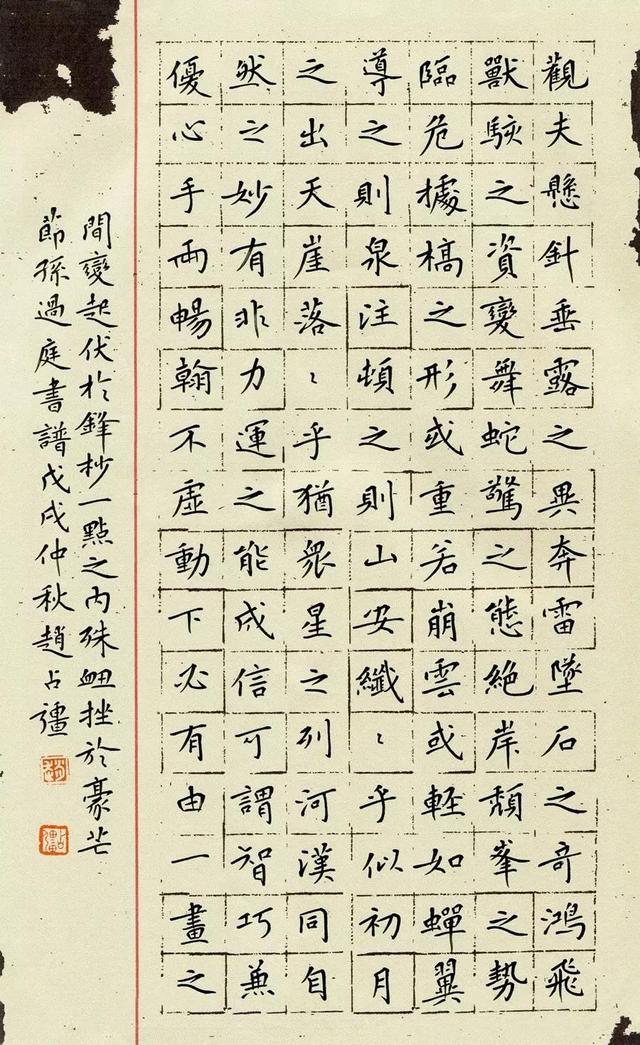 觀夫懸針垂露之異奔雷墜石之奇鴻飛
獸駭之資變舞蛇驚之態絶岸頽峯之勢
臨危據槁之形或重若崩雲或輕如蟬翼
導之則泉注頓之則山安纖〻乎似初月
之出天崖落〻乎猶衆星之列河漢同自
然之妙有非力運之能成信可謂智巧兼
優心手兩暢翰不虚動下必有由一畫之
間變起伏於鋒杪一點之内殊衄挫於豪芒
節孫過庭書譜戊戌仲秋趙占彊